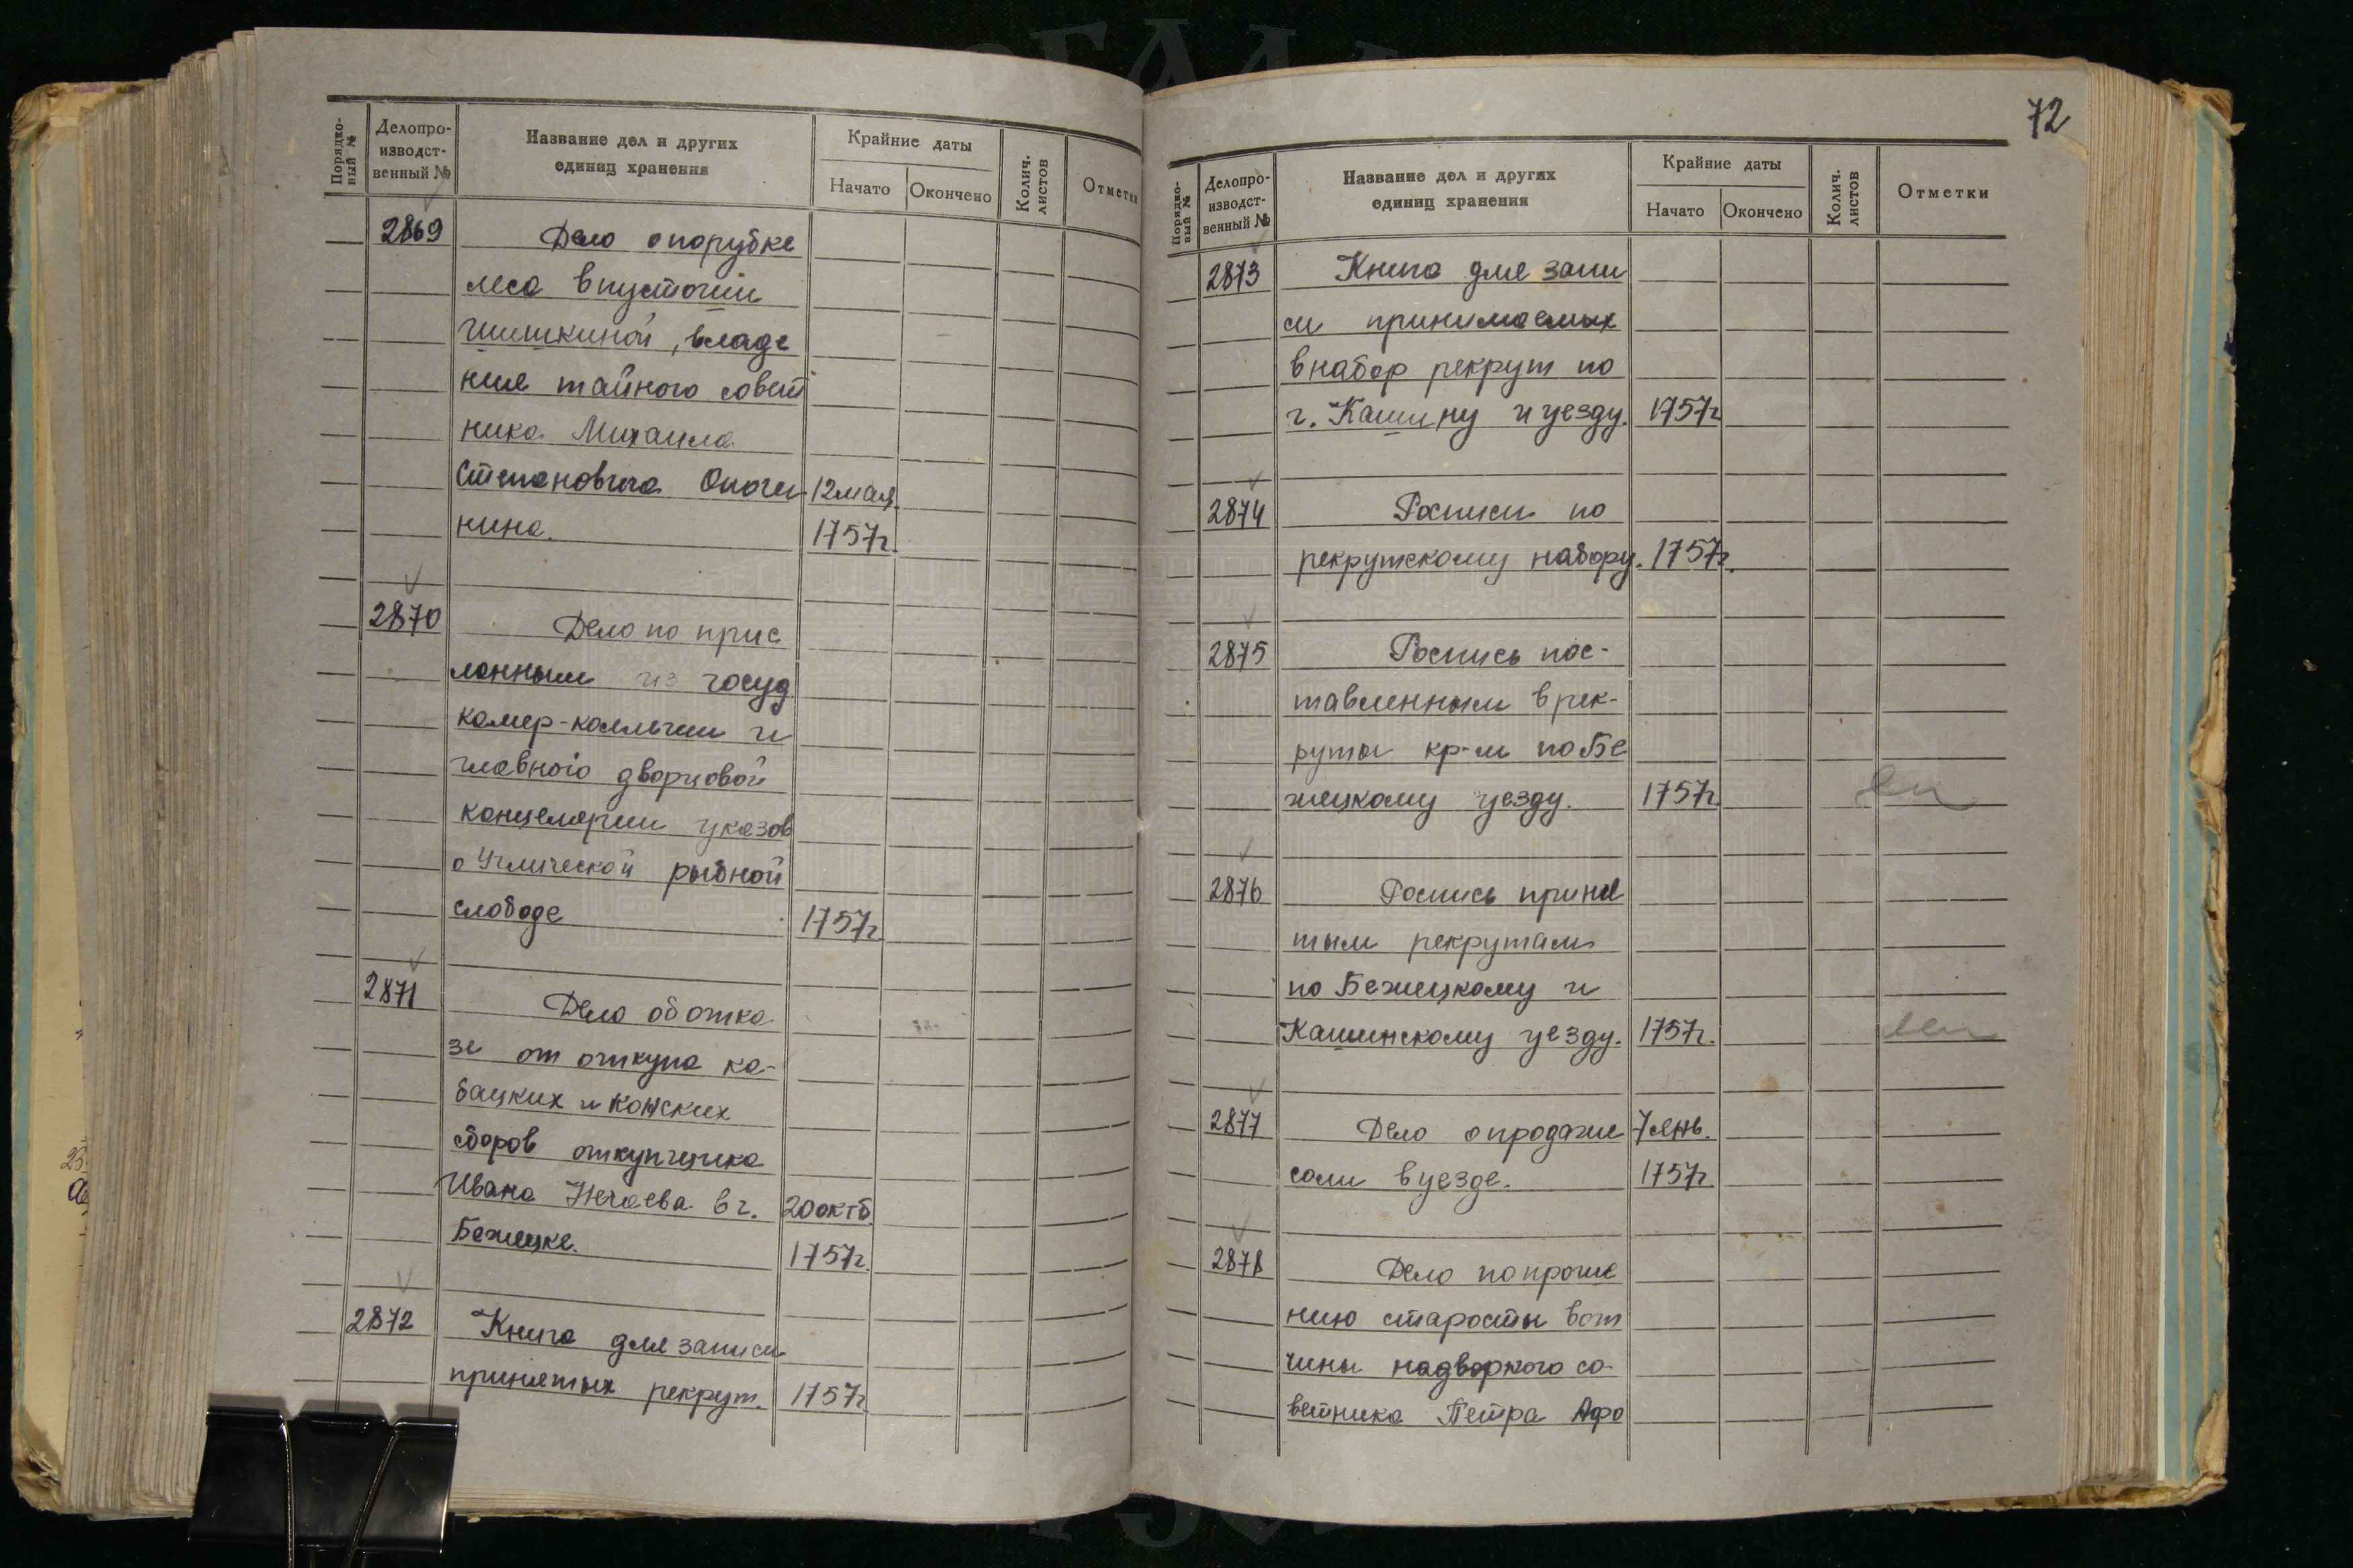 Порядко-
вый №
Делопро-
изводст-
венный №
Название дел и других
единиц хранения
Крайние даты
Начато
Окончено
Колич.
листов
Отметки
2869
Дело о порубке
леса в пустоши
Шишкиной, владе
ния тайного совет
ника Михаила
Степановича Опочи
12 мая
нина.
1757г.
2870
Дело по прис
ланным из госуд
камер-коллегии и
главного дворцовой
канцелярии указов
о Угличской рыбной
слободе
1757г.
2871
Дело об отка
зе от откупа ка-
бацких и конских
сборов откупщика
Ивана Нечаева в г.
20 октб.
Бежецке.
1757г.
2872
Книга для записи
принятых рекрут.
1757г.
72
Порядко-
вый №
Делопро-
изводст-
венный №
Название дел и других
единиц хранения
Крайние даты
Начато
Окончено
Колич.
листов
Отметки
2873
Книга для запи
си принимаемых
в набор рекрут по
г. Кашину и уезду.
1757г
2874
Росписи по
рекрутскому набору.
1757г.
2875
Роспись пос-
тавленным в рек-
руты кр-м по Бе
жецкому уезду.
1757г.
2876
Роспись приня
тым рекрутам
по Бежецкому и
Кашинскому уезду.
1757г.
2877
Дело о продаже
7 янв.
соли в уезде.
1757г.
2878
Дело по проше
нию старосты вот
чины надворного со-
ветника Петра Афо